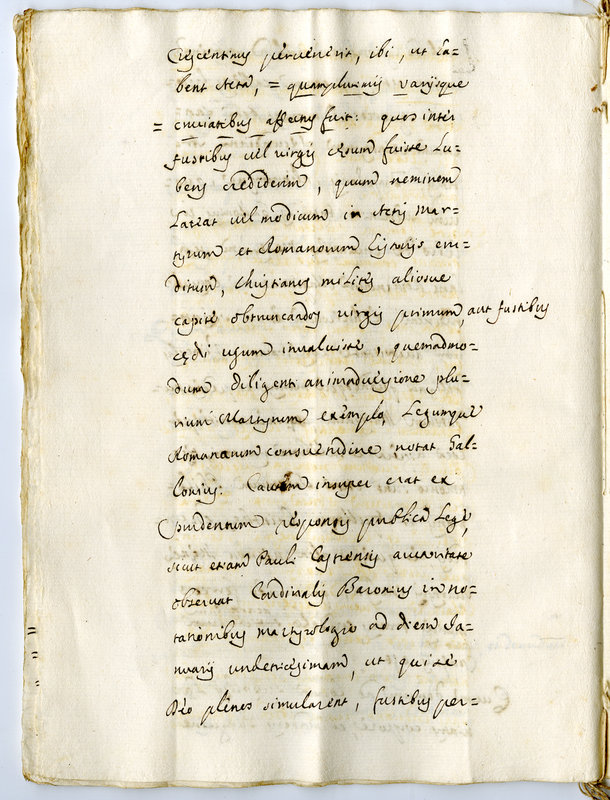 Crescentinus pervenerit, ibi, ut ha-
bent Acta, = quamplurimis varijsque
= cruciatibus affectus fuit: quos inter
fustibus vel virgis cæsum fuisse lu-
bens crediderim, quum neminem
lateat vel modicum in Actis Mar-
tyrum et Romanorum eru-
ditum, Christianos milites aliosve
capite obtruncandos virgis primum, aut fustibus
cędi usum invaluisse, quemadmo-
dum diligenti animadversione plu-
rium Martyrum exemplo, Legumque
Romanarum consuetudine notat Gal-
lonius: Cautum insuper erat ex
Prudentum responsis publica Lege,
sicut etiam Pauli Castrensis auctoritate
observat Cardinalis Baronius in no-
tationibus Martyrologio ad diem Ja-
nuarij undetricesimam, ut qui se
Deo plenos simularent, fustibus per-